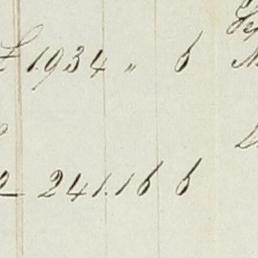 £ 1934 " 6
241.16 6